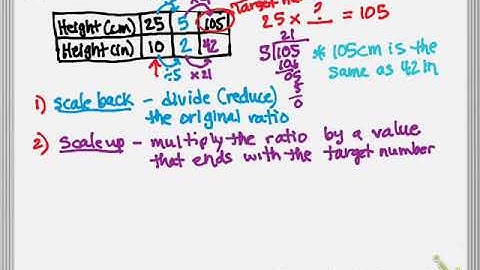 Target
Height (cm) 25 5 105
25 × ? = 105
Height (in) 10 2 42
÷5 ×21
21
5 105
* 105cm is the
same as 42 in
05
5
0
1) scale back - divide (reduce)
the original ratio
2) scale up - multiply the ratio by a value
that ends with the target number